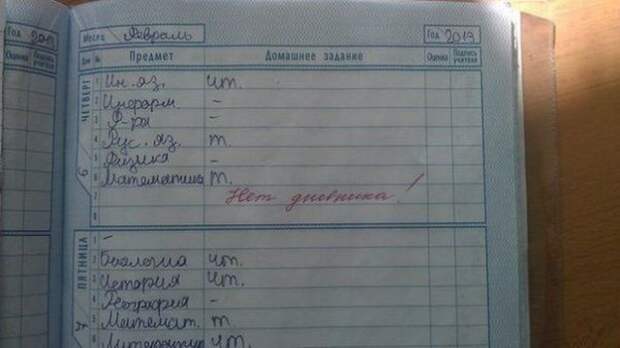 Год 2013
Оценка Подпись учителя
Месяц Февраль Год 2013
Дни № Предмет Домашнее задание Оценка Подпись учителя
ЧЕТВЕРГ
1 Ин. яз. чт.
2 Информ. –
3 Ф-ра –
4 Рус. яз. т.
5 Физика –
6 Математика т.
7 Нет дневника!
8
ПЯТНИЦА
1 –
2 Биология чт.
3 История чт.
4 География –
5 Математ. т.
6 Литература чт.